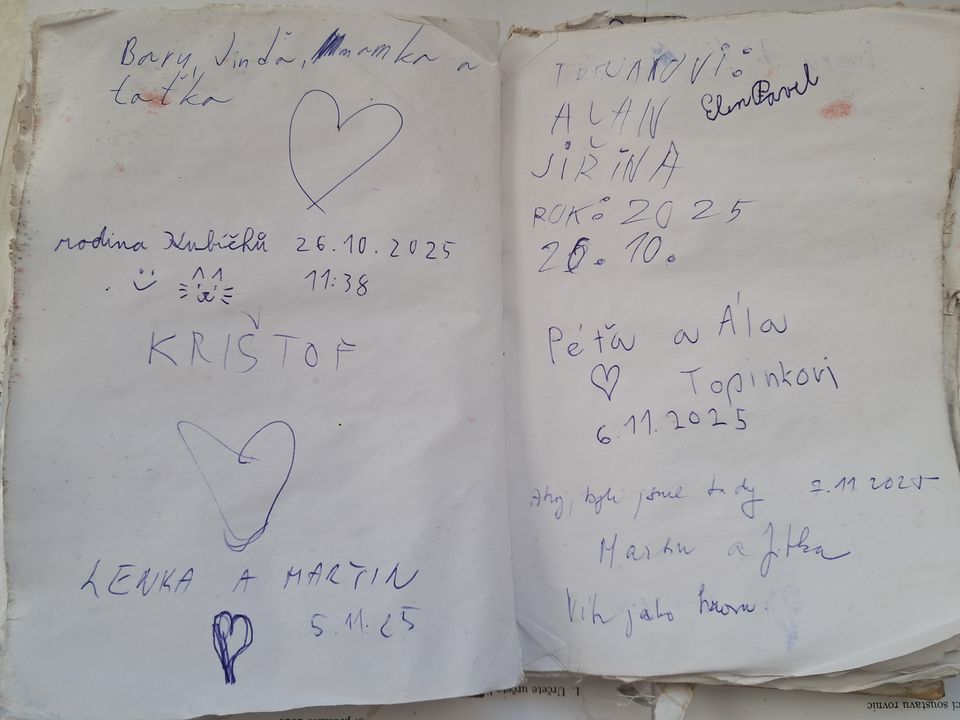 Bary, Jinďa, mamka a
taťka
rodina Kubíčků 26.10.2025
11:38
KRIŠTOF
LENKA A MARTIN
5.11.25
ALAN
Elen Pavel
JIŘINA
ROK: 2025
26. 10.
Péťa a Ála
Topinkovi
6.11.2025
Ahoj, byli jsme tady 7.11.2025
Martin a Jitka
Vítr jako hrom.
1. Určete
ci soustavu rovnic